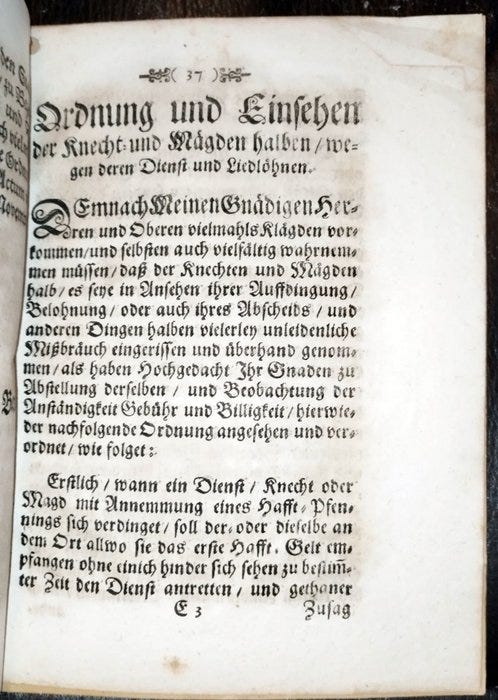 ( 37 )
Ordnung und Einsehen
der Knecht- und Mägden halben / we-
gen deren Dienst und Liedlöhnen.
DEmnach Meinen Gnädigen Her-
ren und Oberen vielmahls Klägden vor-
kommen / und selbsten auch vielfältig wahrnem-
men müssen / daß der Knechten und Mägden
halb / es seye in Ansehen ihrer Auffdingung /
Belohnung / oder auch ihres Abscheids / und
anderen Dingen halben vielerley unleidenliche
Mißbräuch eingerissen und überhand genom-
men / als haben Hochgedacht Ihr Gnaden zu
Abstellung derselben / und Beobachtung der
Anständigkeit Gebühr und Billigkeit / hierwie-
der nachfolgende Ordnung angesehen und ver-
ordnet / wie folget:
Erstlich / wann ein Dienst / Knecht oder
Magd mit Annemmung eines Hafft-Pfen-
nings sich verdinget / soll der- oder dieselbe an
dem Ort allwo sie das erste Hafft-Gelt em-
pfangen ohne einich hinder sich sehen zu bestim̃-
ter Zeit den Dienst antretten / und gethaner
E 3 Zusag